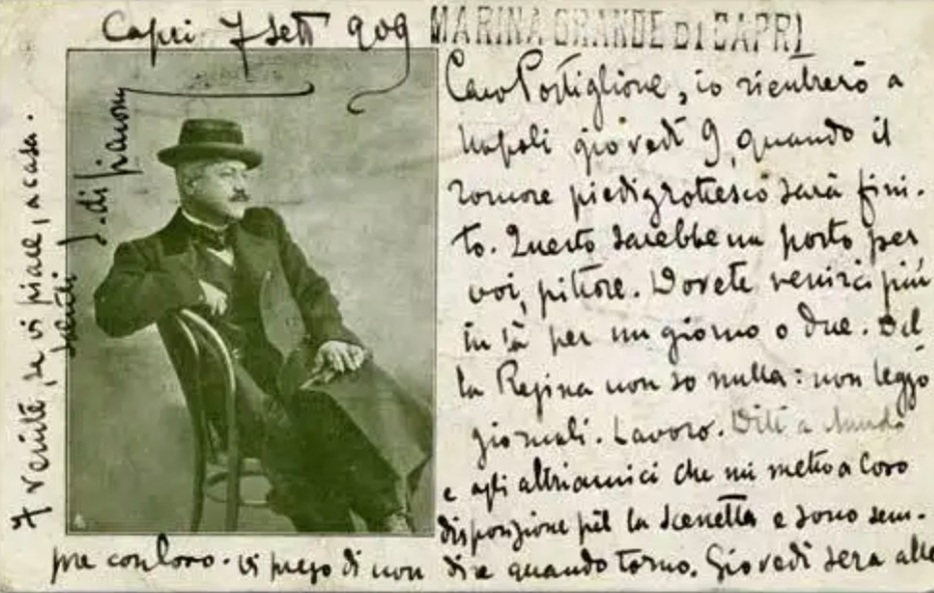 Capri 7 sett 909
MARINA GRANDE DI CAPRI
Caro Postiglione, io rientrerò a
Napoli giovedì 9, quando il
romore piedigrottesco sarà fini-
to. Questo sarebbe un posto per
voi, pittore. Dovete venirci più
in là per un giorno o due. Del
la Regina non so nulla: non leggo
giornali. Lavoro. Dite a
e agli altri amici che mi metto a loro
disposizione per la scenetta e sono sem-
pre con loro. Vi prego di non dire quando torno. Giovedì sera alle
7 venite, se vi piace, a casa.
S. di Giacomo